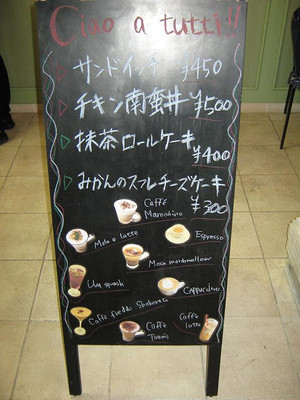 Ciao a tutti!!
サンドイッチ ¥450
チキン南蛮丼 ¥500
抹茶ロールケーキ ¥400
みかんのスフレチーズケーキ ¥300
Caffè Marochino
Mela e latte
Espresso
Moca marshmallow
Uva squash
Cappuccino
Caffè freddo Shakerato
Caffè Tirami
Caffè latte